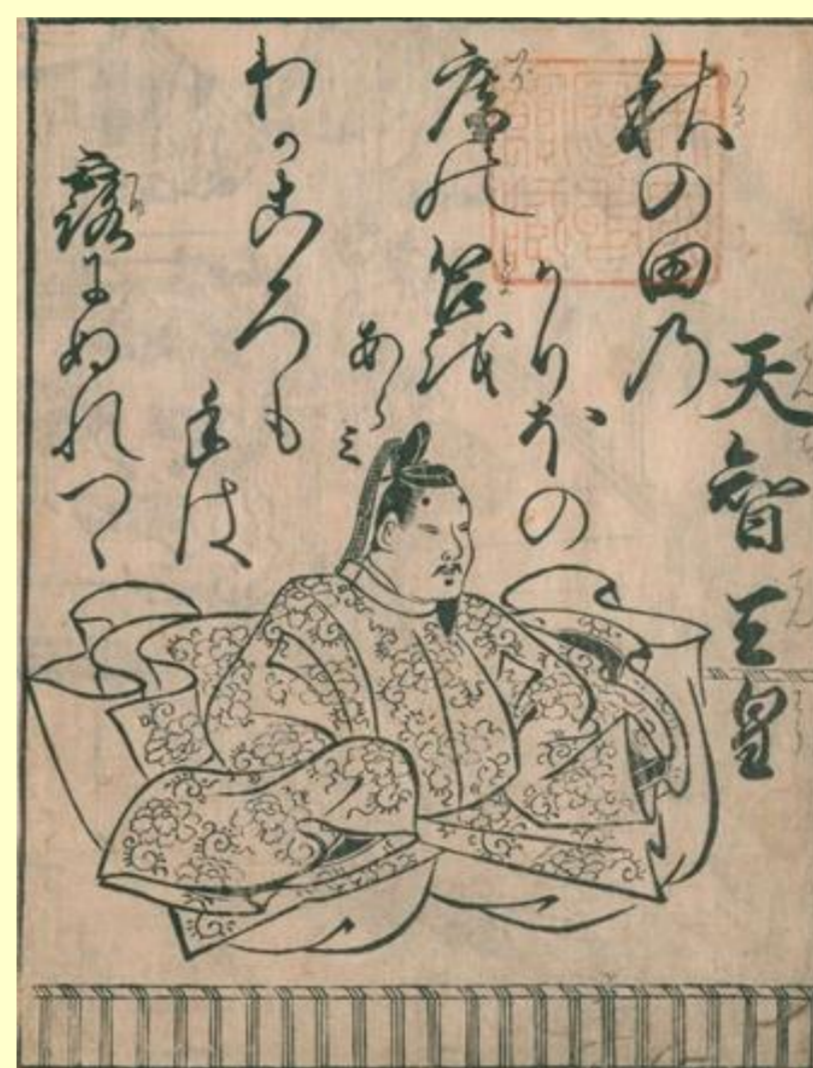 天智天皇
秋の田乃
かりほの
廬の苫を
あらミ
わかころも
手は
露にぬれつゝ